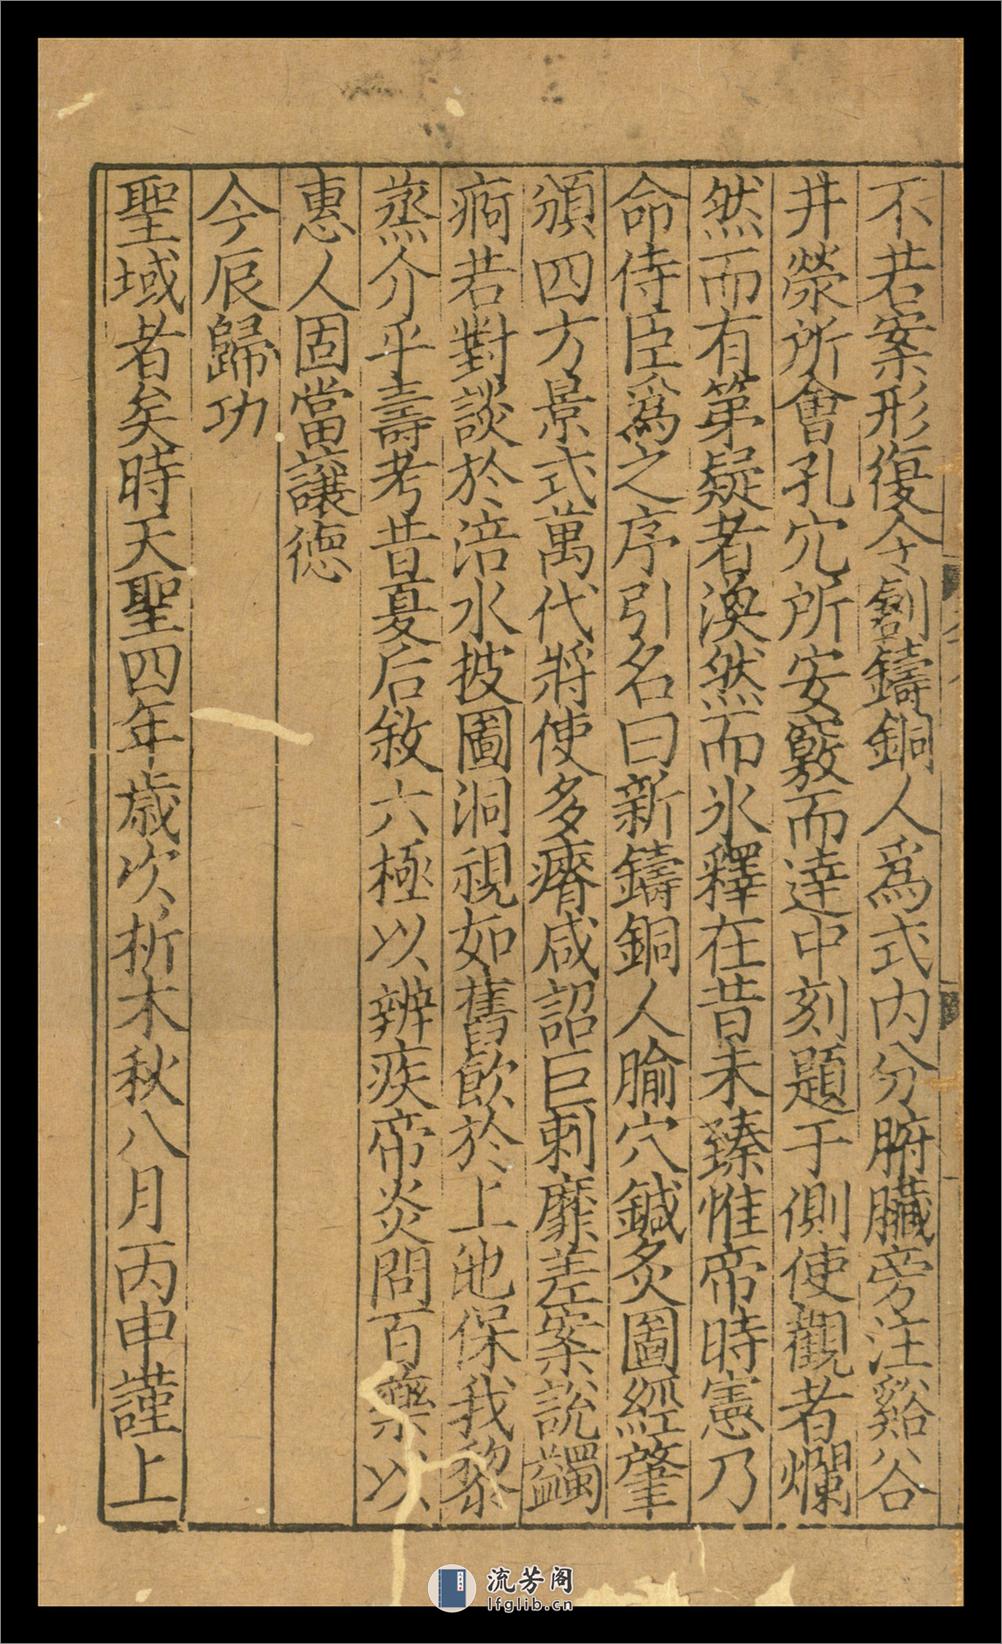 不若案形復令創鑄銅人爲式内分腑臓旁注谿谷
井滎所會孔穴所安竅而達中刻題于側使觀者爛
然而有第疑者渙然而氷釋在昔未臻惟帝時憲乃
命侍臣爲之序引名曰新鑄銅人腧穴鍼灸圖經肇
頒四方景式萬代將使多瘠咸詔巨刺靡差案說蠲
痾若對談於涪水披圖洞視如舊飲於上池保我黎
烝介乎壽考昔夏后敘六極以辨疾帝炎問百藥以
惠人固當讓德
今辰歸功
聖域者矣時天聖四年歲次析木秋八月丙申謹上
流芳阁
lfglib.cn